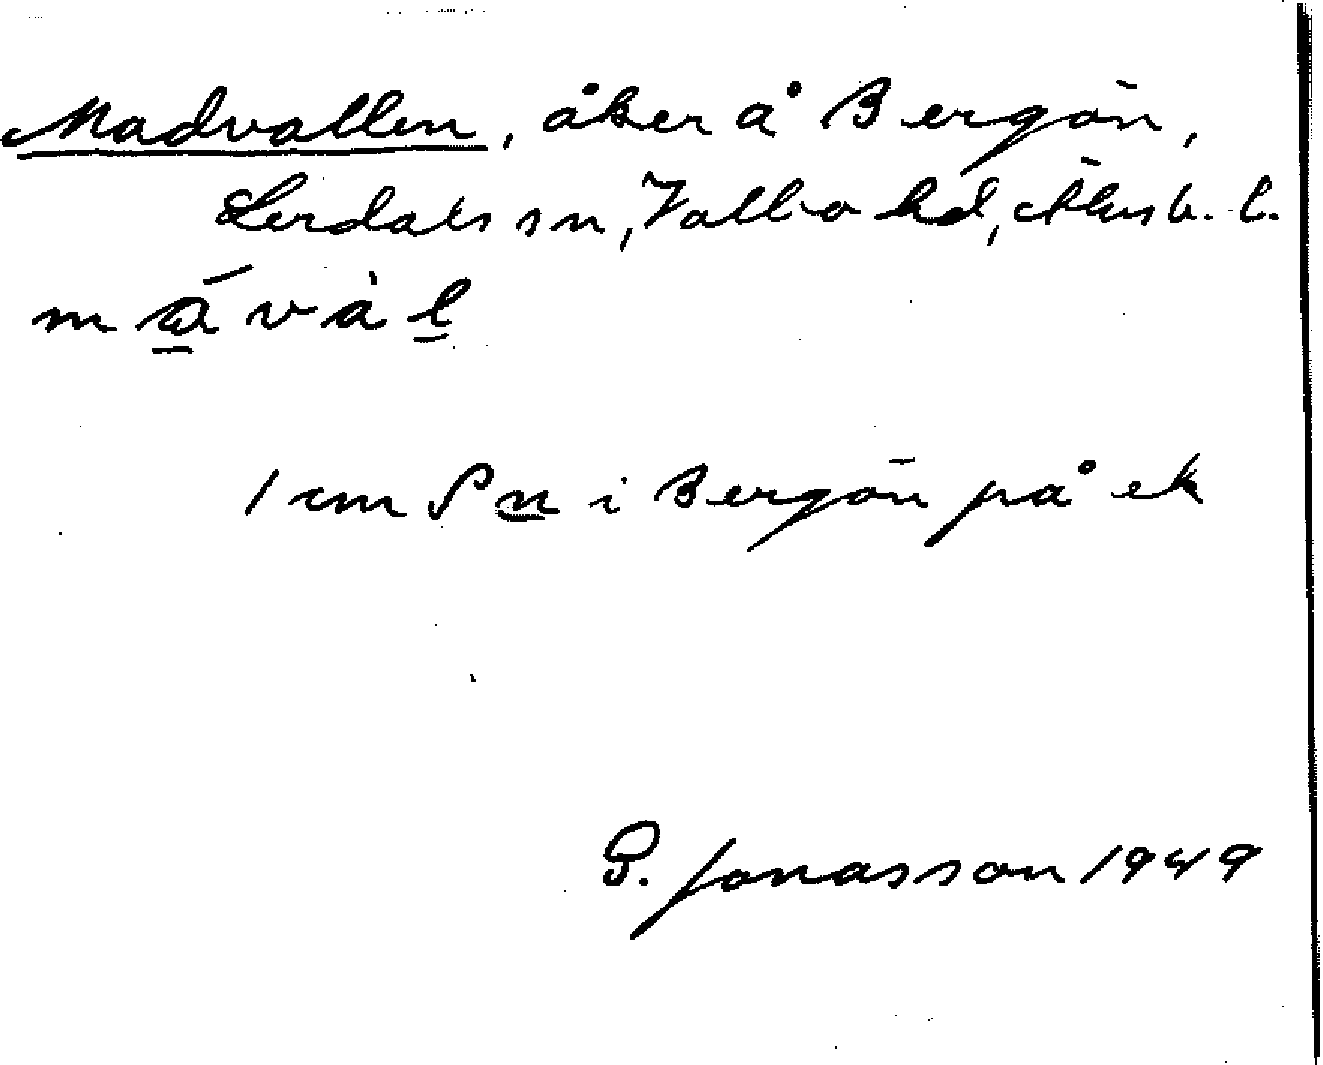 Madvallen, åker å Bergön,
Lerdals sn, Valbo hd, Älvsb. l.
mávàl
1 cm S n i Bergön på ek
G. Jonasson 1949